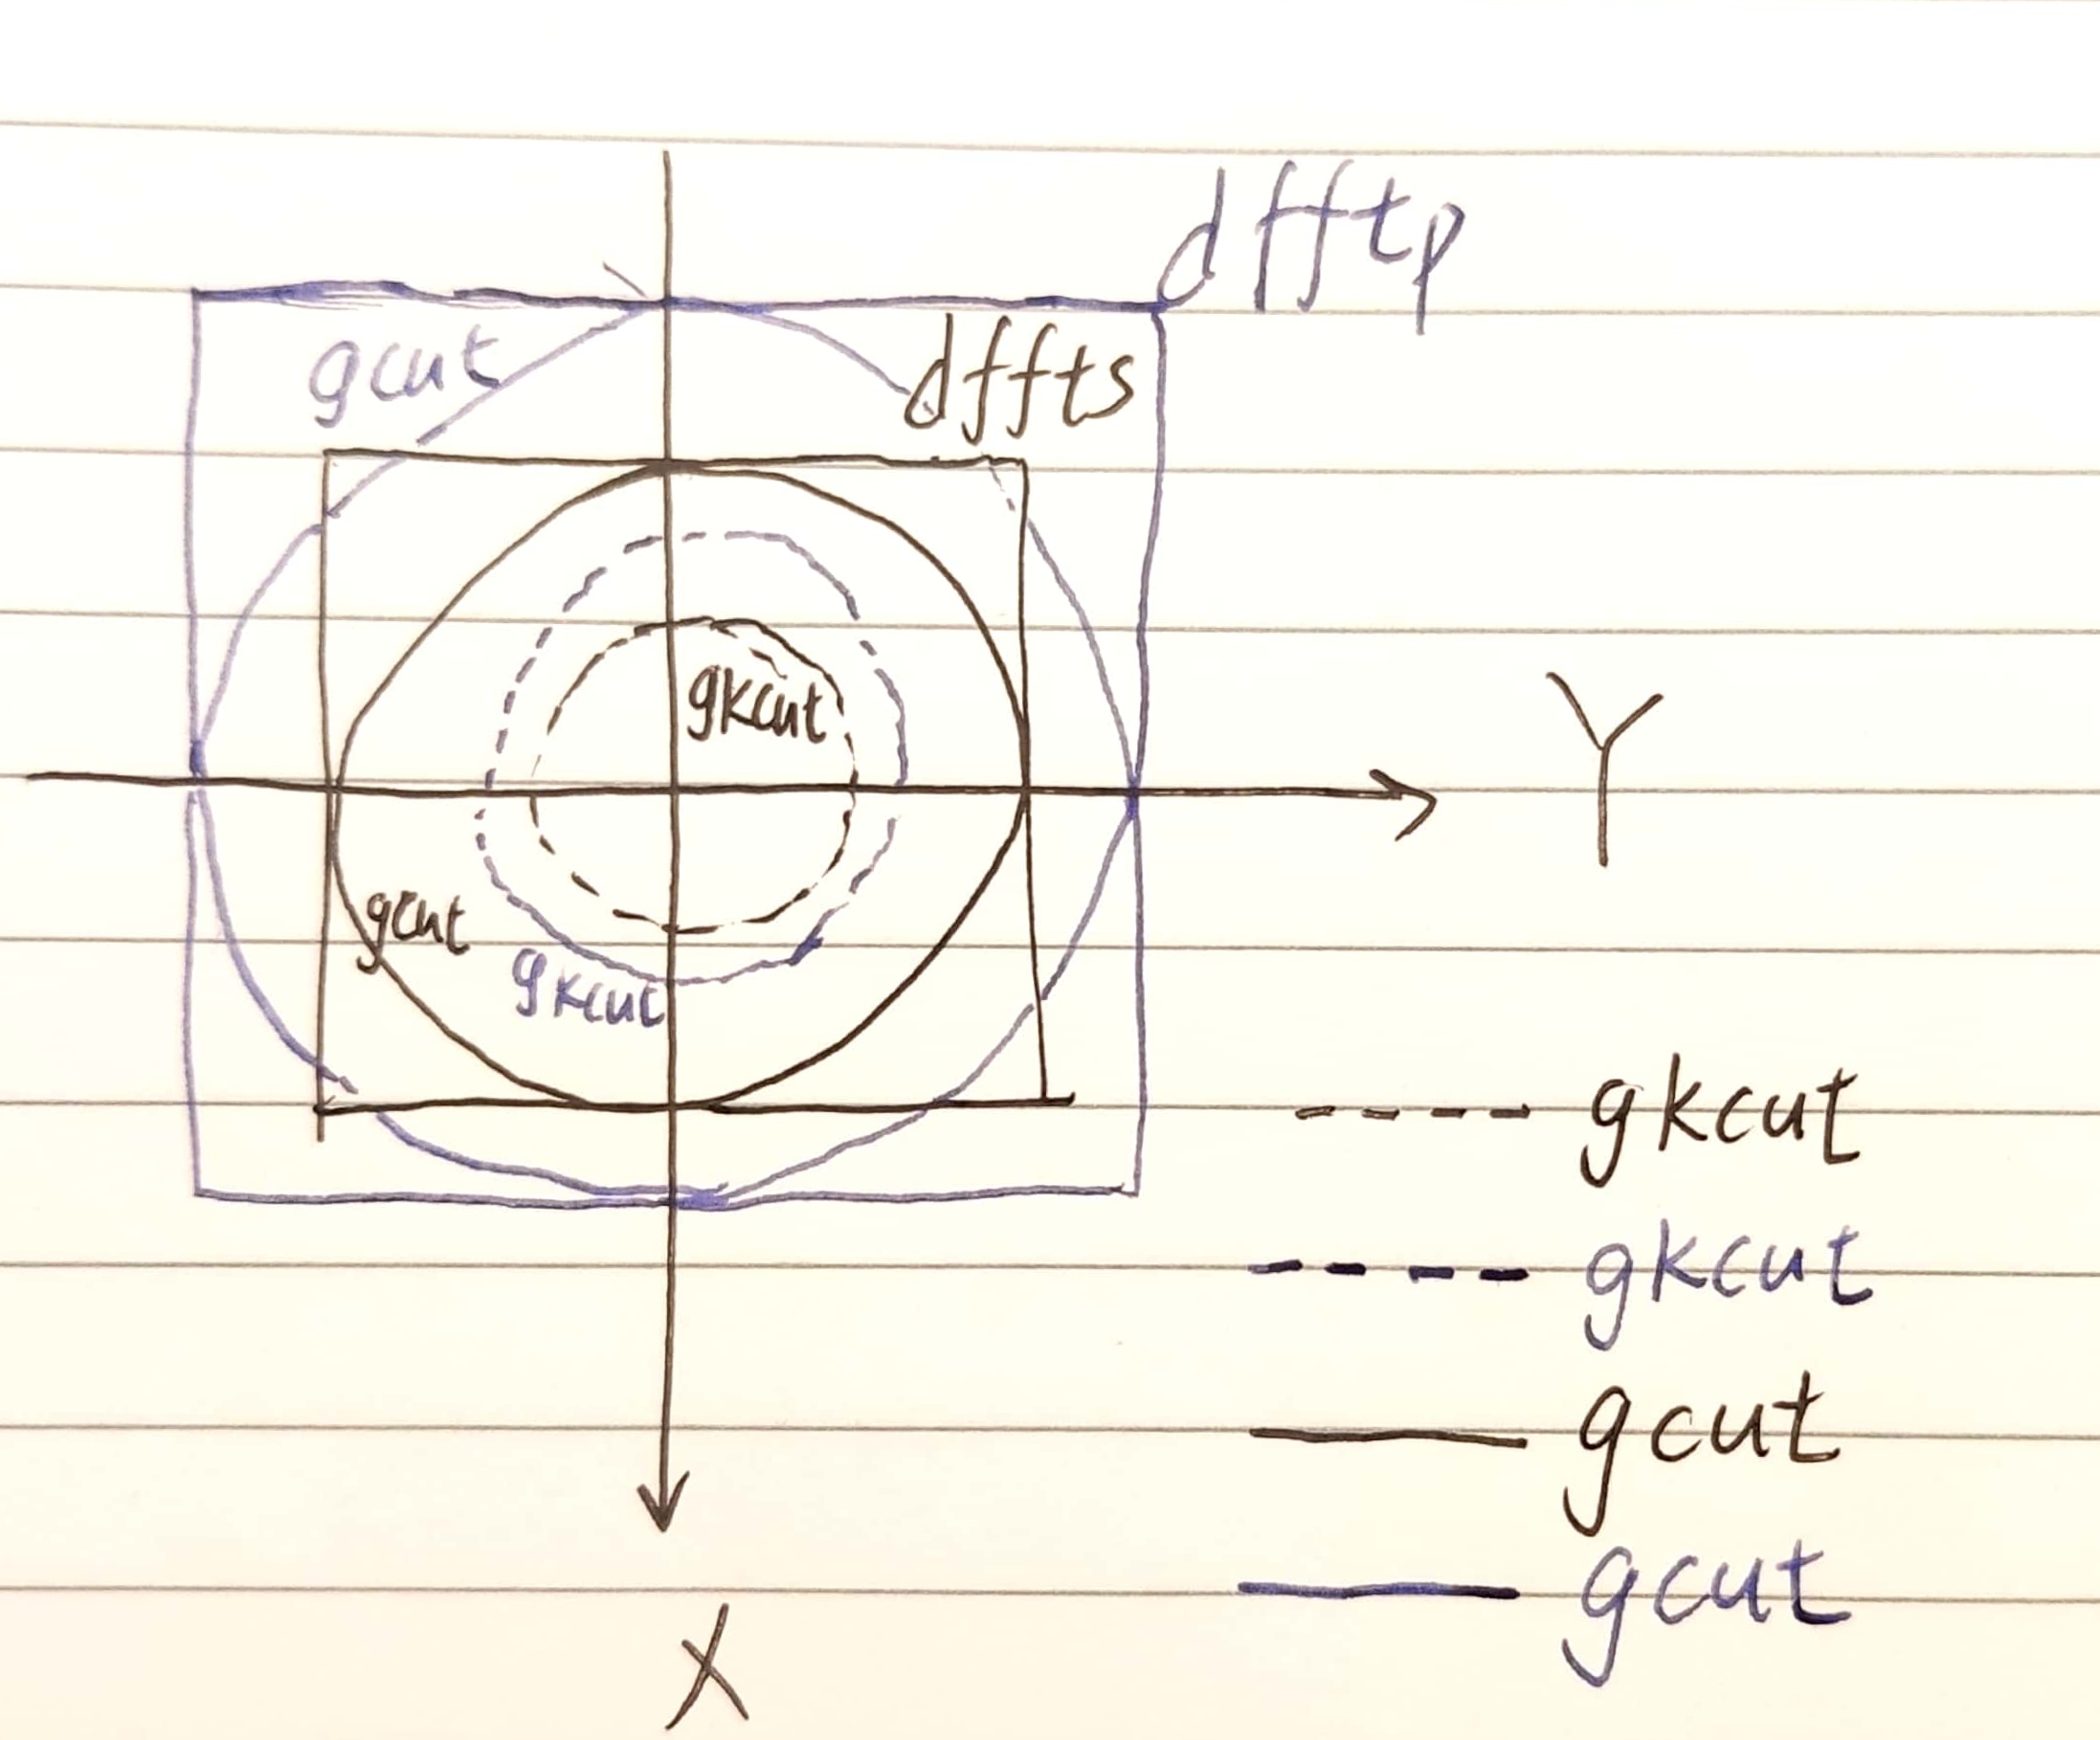 dfftp
gcut
dffts
gkcut
Y
gcut
gkcut
gkcut
gkcut
gcut
gcut
X